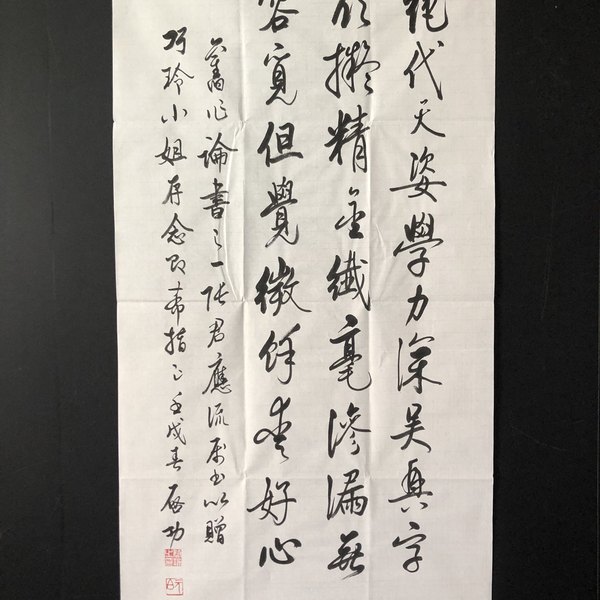 絕代天姿學力深吳興字
欣擬精金纖毫滲漏無
容覓但覺微餘愛好心
舊作論書之一張君應流屬書以贈
巧玲小姐存念即希指正壬戌春启功